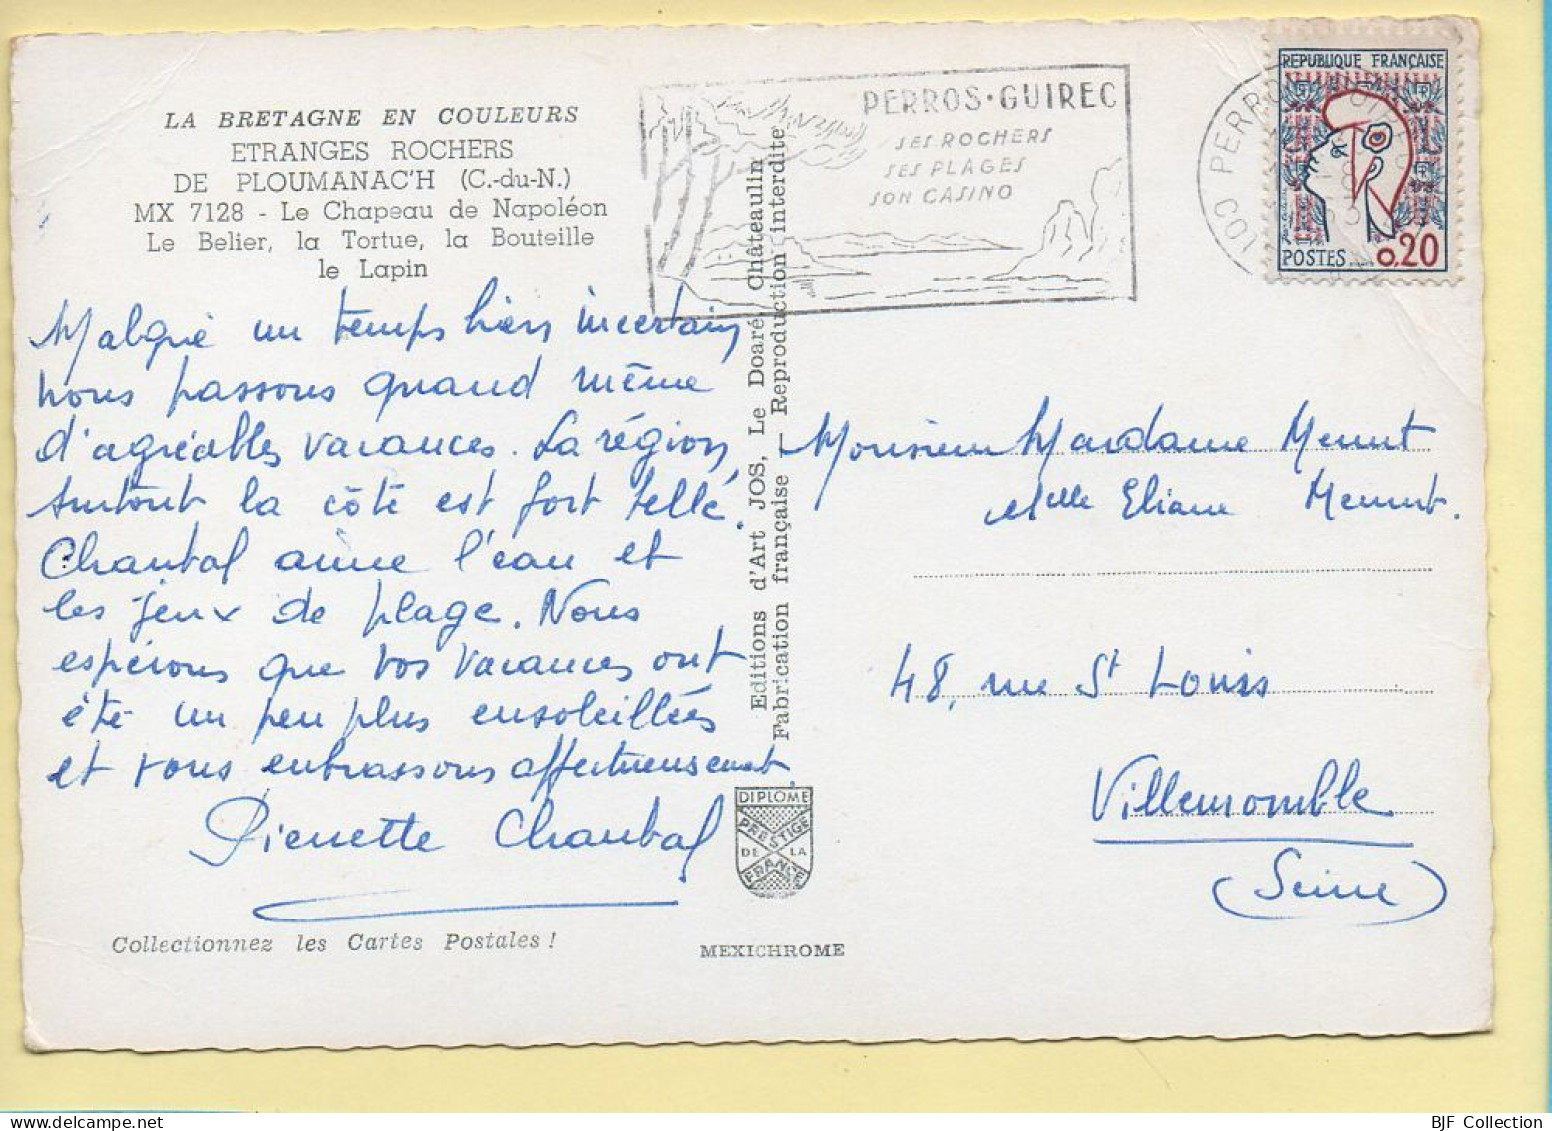 LA BRETAGNE EN COULEURS
ETRANGES ROCHERS
DE PLOUMANAC'H (C.-du-N.)
MX 7128 - Le Chapeau de Napoléon
Le Belier, la Tortue, la Bouteille
le Lapin
Malgré un temps bien incertain,
nous passons quand même
d'agréables vacances. La région,
surtout la côte est fort belle.
Chantal aime l'eau et
les jeux de plage. Nous
espérons que vos vacances ont
été un peu plus ensoleillées
et vous embrassons affectueusement.
Pierrette Chantal
Collectionnez les Cartes Postales !
Editions d'Art JOS, Le Doaré, Châteaulin
Fabrication française — Reproduction interdite
DIPLOME
PRESTIGE
DE LA
FRANCE
MEXICHROME
PERROS-GUIREC
SES ROCHERS
SES PLAGES
SON CASINO
REPUBLIQUE FRANÇAISE
POSTES 0,20
Monsieur Mardame
et Mlle Eliane
48, rue St Louis
Villemomble
(Seine)
BJF Collection